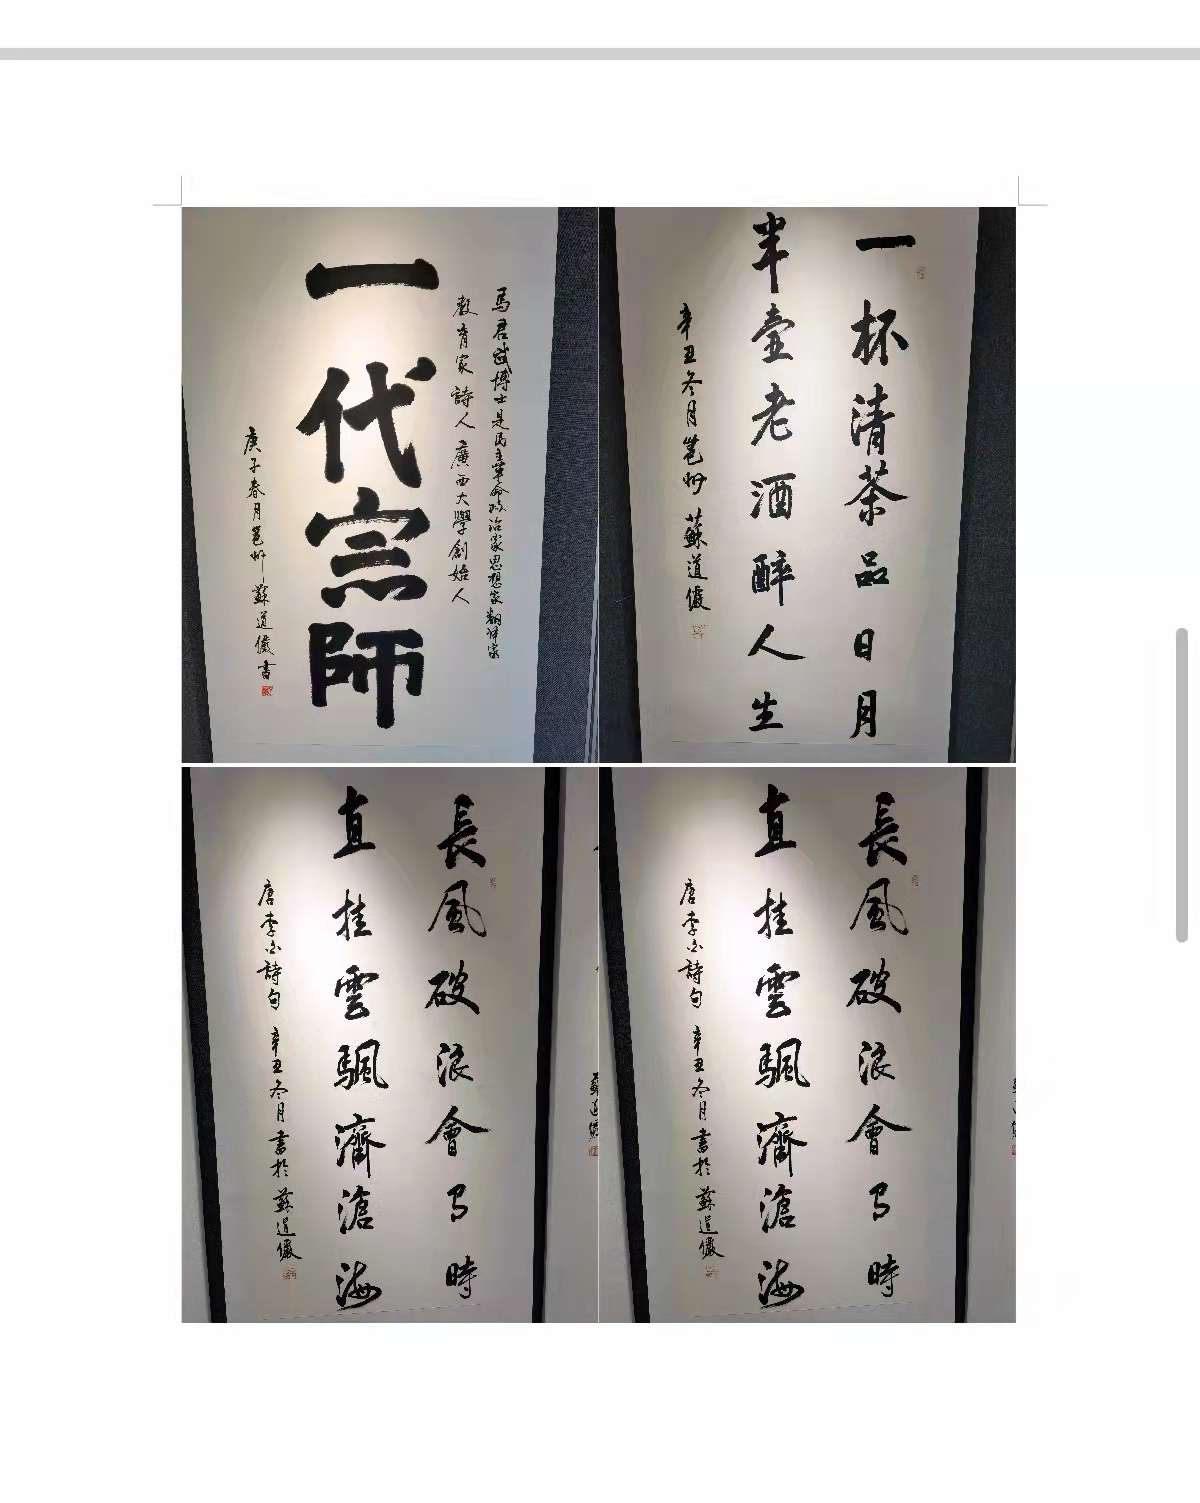 一代宗師
馬君武博士是民主革命政治家思想家翻译家
教育家詩人廣西大學創始人
庚子春月邕州蘇道儼書
一杯清茶品日月
半壺老酒醉人生
辛丑冬月邕州蘇道儼
長風破浪會有時
直挂雲颿濟滄海
唐李白詩句辛丑冬月書於蘇道儼
長風破浪會有時
直挂雲颿濟滄海
唐李白詩句辛丑冬月書於蘇道儼